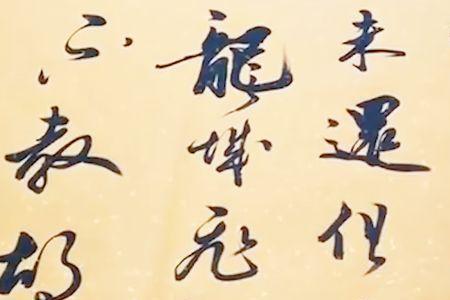 未還但
龍城飛
不教胡